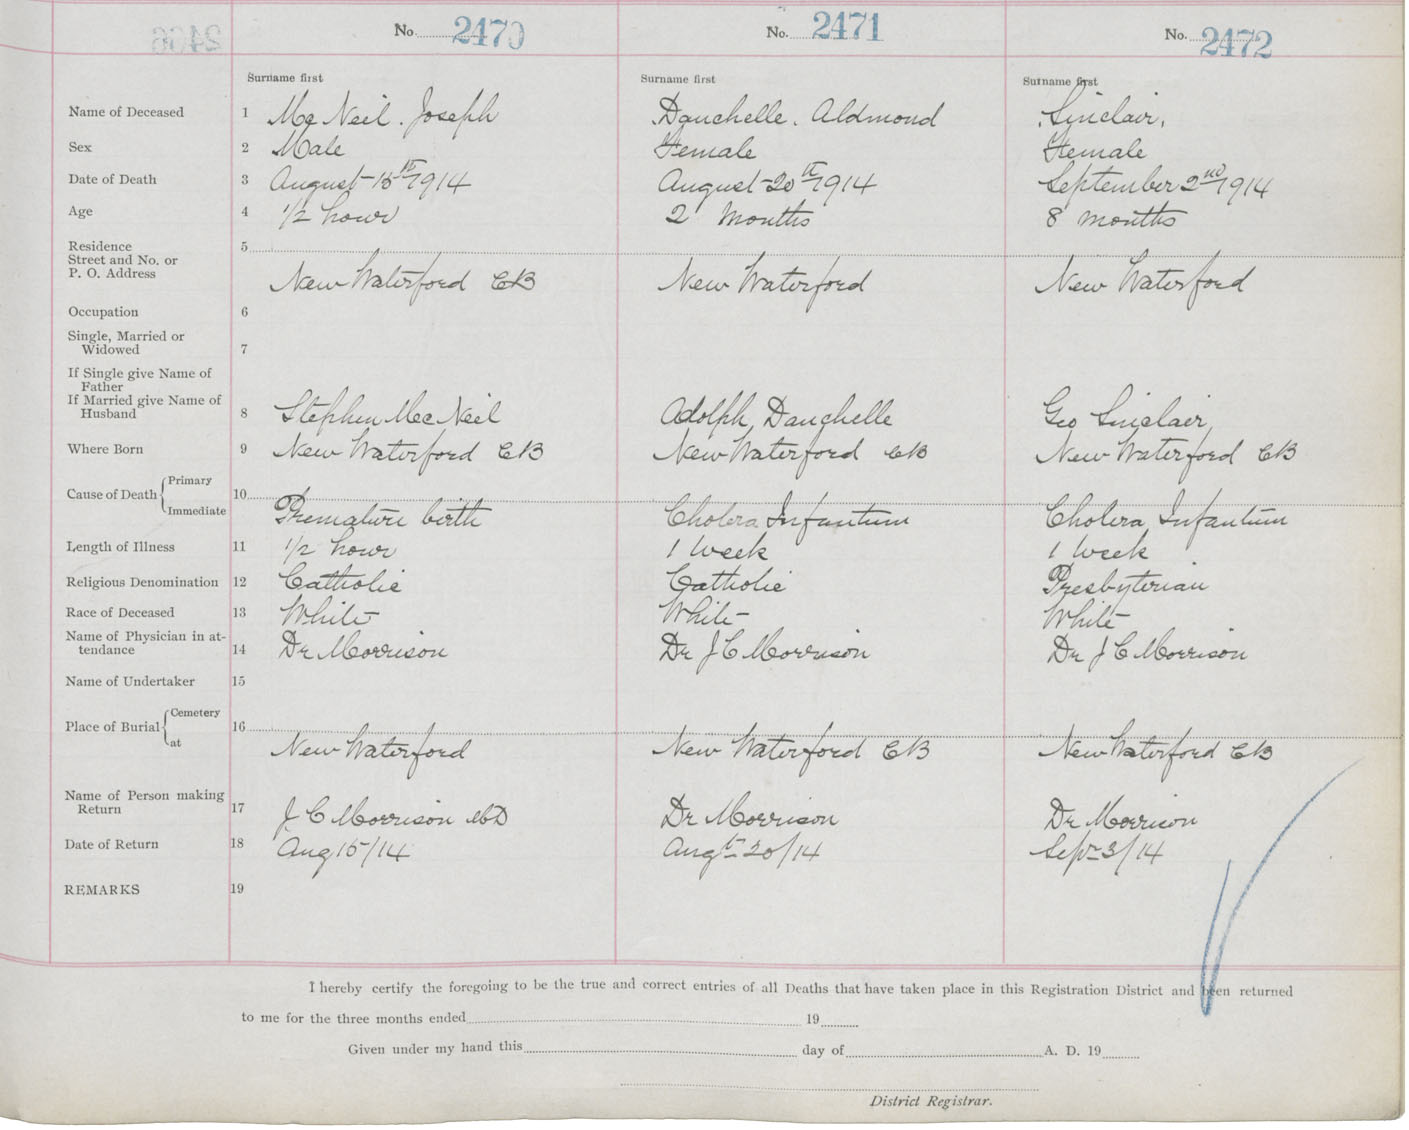 No. 2470 No. 2471 No. 2472
Surname first Surname first Surname first
Name of Deceased 1 Mc Neil. Joseph Dauchelle. Aldmond Sinclair,
Sex 2 Male Female Female
Date of Death 3 August 15th 1914 August 20th 1914 September 2nd 1914
Age 4 1/2 hour 2 months 8 months
Residence 5
Street and No. or
P. O. Address New Waterford CB New Waterford New Waterford
Occupation 6
Single, Married or
Widowed 7
If Single give Name of
Father
If Married give Name of
Husband 8 Stephen Mac Neil Adolph Dauchelle Geo Sinclair,
Where Born 9 New Waterford CB New Waterford CB New Waterford CB
Primary
Cause of Death 10
Immediate Premature birth Cholera Infantum Cholera Infantum
Length of Illness 11 1/2 hour 1 week 1 week
Religious Denomination 12 Catholic Catholic Presbyterian
Race of Deceased 13 White White White
Name of Physician in at-
tendance 14 Dr Morrison Dr J C Morrison Dr J C Morrison
Name of Undertaker 15
Cemetery
Place of Burial 16
at New Waterford New Waterford CB New Waterford CB
Name of Person making
Return 17 J C Morrison MD Dr Morrison Dr Morrison
Date of Return 18 Aug 15/14 Augt 20/14 Sept 3/14
REMARKS 19
I hereby certify the foregoing to be the true and correct entries of all Deaths that have taken place in this Registration District and been returned
to me for the three months ended 19
Given under my hand this day of A. D. 19
District Registrar.